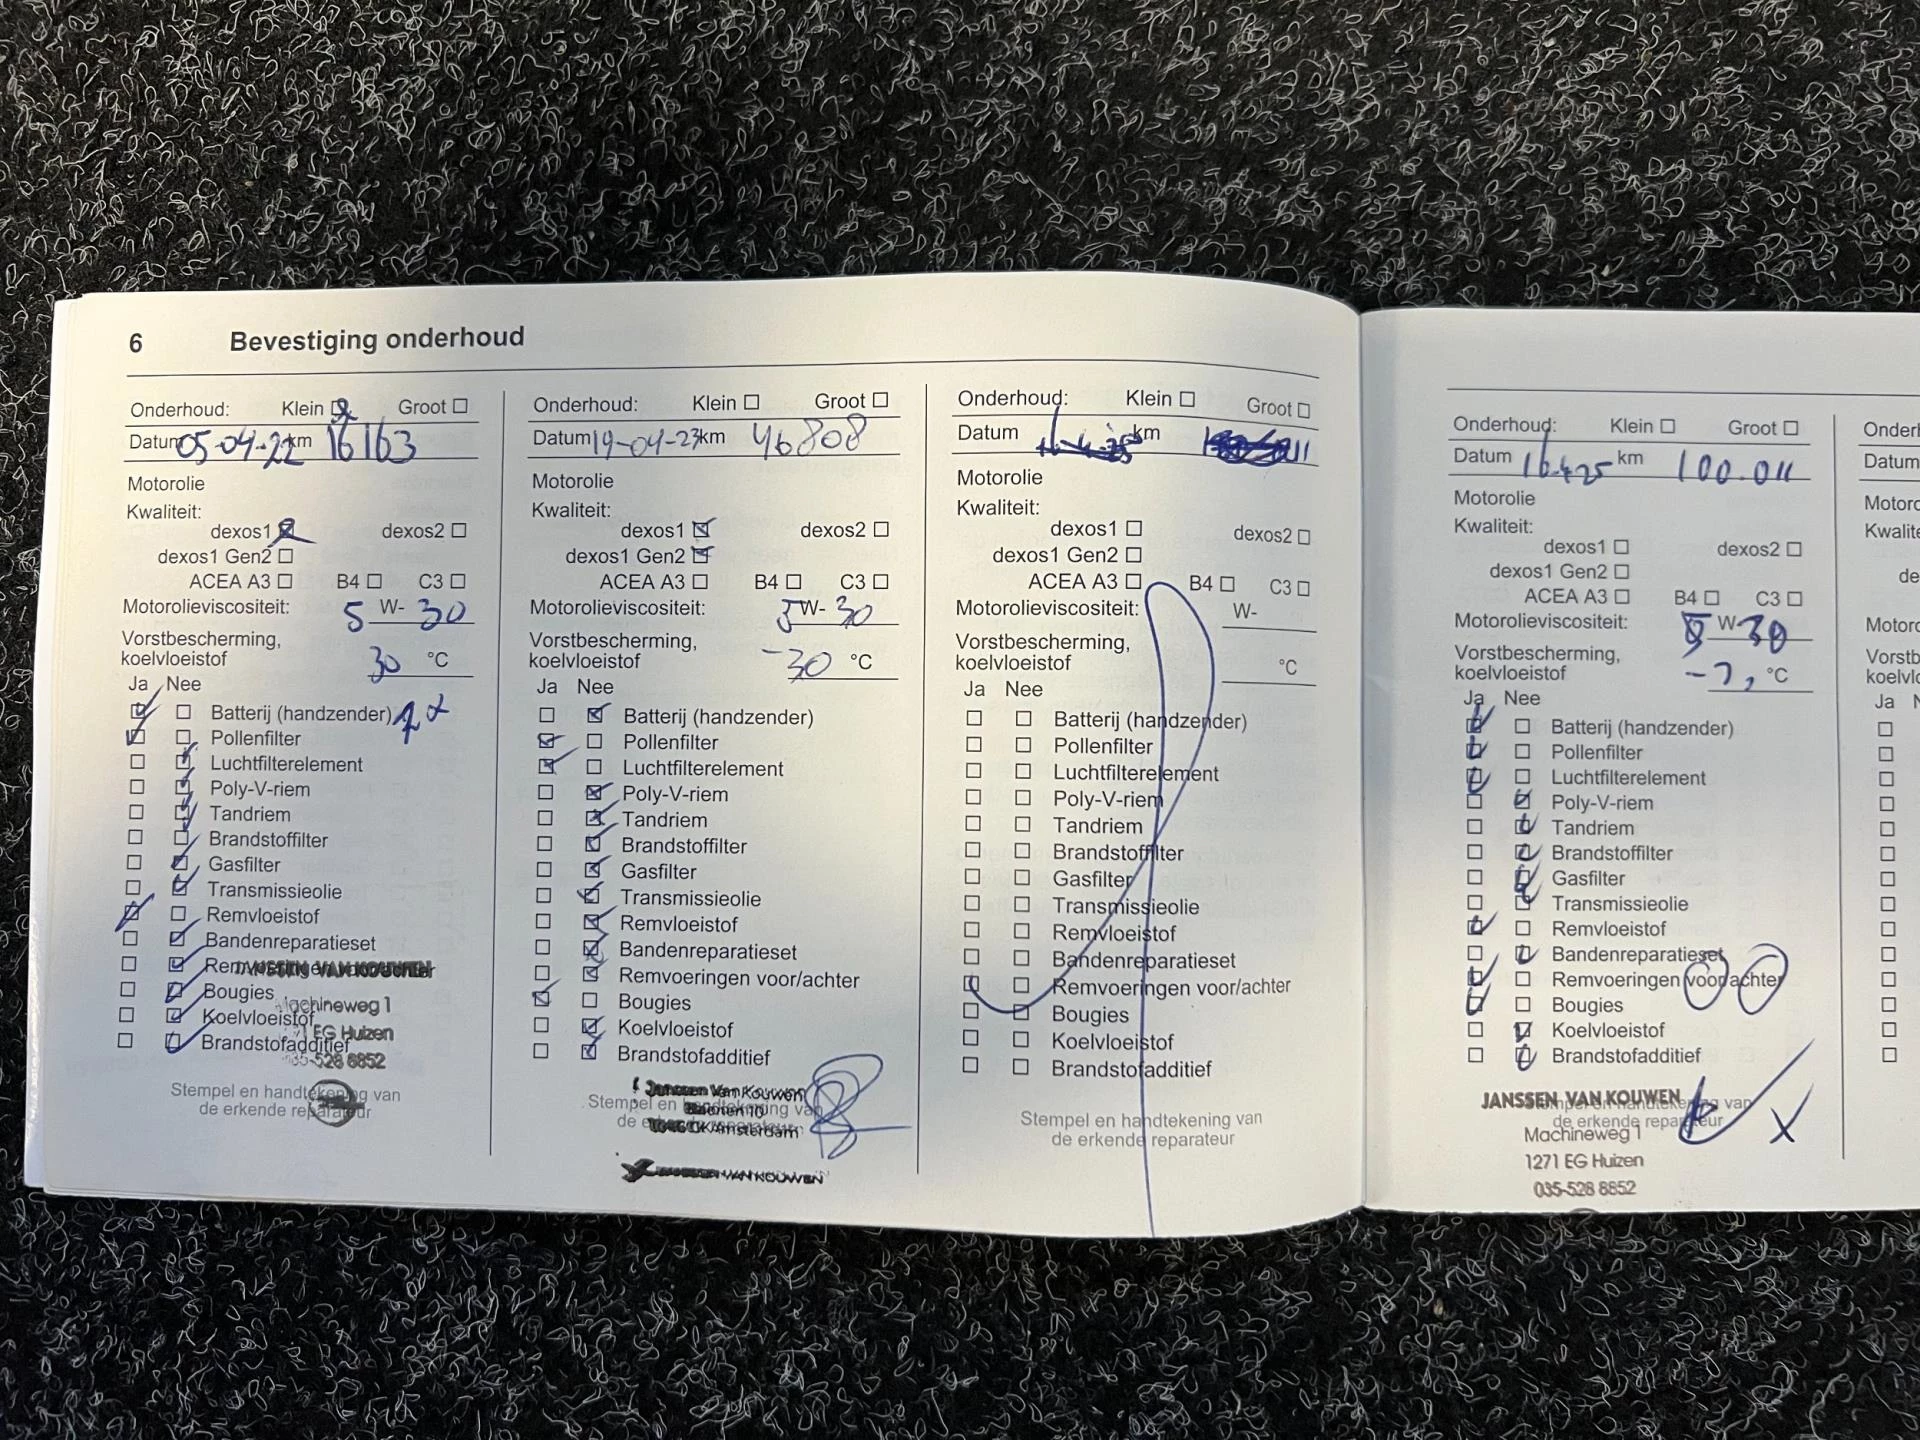 6 Bevestiging onderhoud
Onderhoud: Klein Groot
Datum 05-04-22 km 16163
Motorolie
Kwaliteit:
dexos1 dexos2
dexos1 Gen2
ACEA A3 B4 C3
Motorolieviscositeit: 5 W- 30
Vorstbescherming,
koelvloeistof 30 °C
Ja Nee
Batterij (handzender)
Pollenfilter
Luchtfilterelement
Poly-V-riem
Tandriem
Brandstoffilter
Gasfilter
Transmissieolie
Remvloeistof
Bandenreparatieset
Remvoeringen voor/achter
JANSSEN VAN KOUWEN
Bougies
Machineweg 1
Koelvloeistof
1271 EG Huizen
Brandstofadditief
035-528 8852
Stempel en handtekening van
de erkende reparateur
Onderhoud: Klein Groot
Datum 19-04-23 km 46808
Motorolie
Kwaliteit:
dexos1 dexos2
dexos1 Gen2
ACEA A3 B4 C3
Motorolieviscositeit: 5 W- 30
Vorstbescherming,
koelvloeistof -30 °C
Ja Nee
Batterij (handzender)
Pollenfilter
Luchtfilterelement
Poly-V-riem
Tandriem
Brandstoffilter
Gasfilter
Transmissieolie
Remvloeistof
Bandenreparatieset
Remvoeringen voor/achter
Bougies
Koelvloeistof
Brandstofadditief
Janssen Van Kouwen
Stempel en handtekening van
de erkende reparateur
Amsterdam
JANSSEN VAN KOUWEN
Onderhoud: Klein Groot
Datum 16-4-25 km
Motorolie
Kwaliteit:
dexos1 dexos2
dexos1 Gen2
ACEA A3 B4 C3
Motorolieviscositeit: W-
Vorstbescherming,
koelvloeistof °C
Ja Nee
Batterij (handzender)
Pollenfilter
Luchtfilterelement
Poly-V-riem
Tandriem
Brandstoffilter
Gasfilter
Transmissieolie
Remvloeistof
Bandenreparatieset
Remvoeringen voor/achter
Bougies
Koelvloeistof
Brandstofadditief
Stempel en handtekening van
de erkende reparateur
Onderhoud: Klein Groot
Datum 16-4-25 km 100.011
Motorolie
Kwaliteit:
dexos1 dexos2
dexos1 Gen2
ACEA A3 B4 C3
Motorolieviscositeit: W- 30
Vorstbescherming,
koelvloeistof °C
Ja Nee
Batterij (handzender)
Pollenfilter
Luchtfilterelement
Poly-V-riem
Tandriem
Brandstoffilter
Gasfilter
Transmissieolie
Remvloeistof
Bandenreparatieset
Remvoeringen voor/achter
Bougies
Koelvloeistof
Brandstofadditief
JANSSEN VAN KOUWEN
Stempel en handtekening van
de erkende reparateur
Machineweg 1
1271 EG Huizen
035-528 8852
Onderh
Datum
Motoro
Kwalite
de
Motoro
Vorstb
koelvlo
Ja N